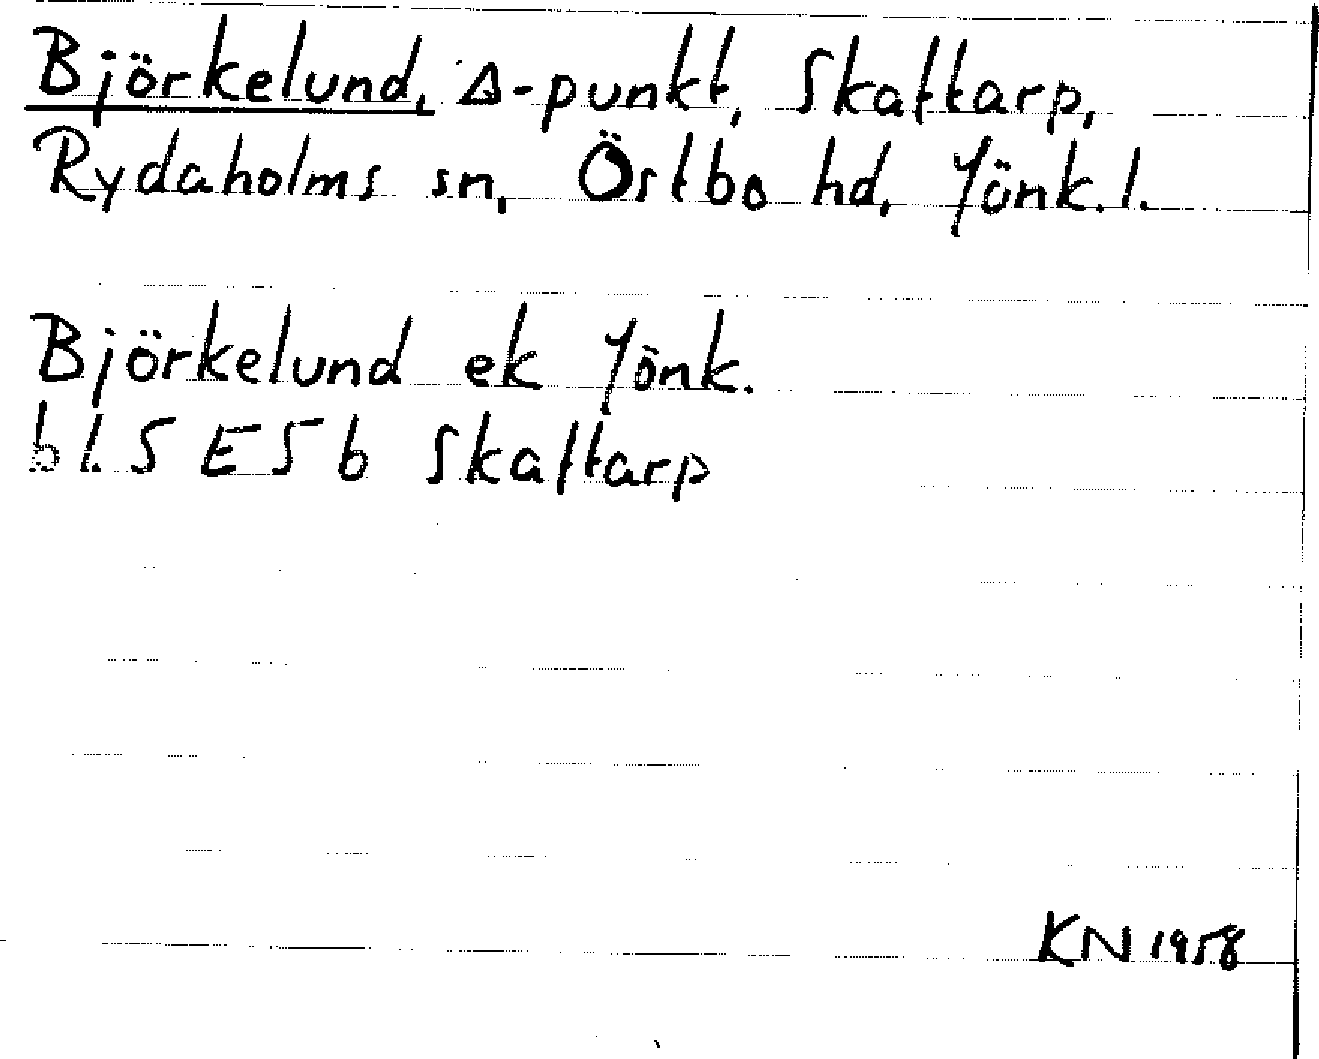 Björkelund, Δ-punkt, Skattarp,
Rydaholms sn, Östbo hd, Jönk. l.
Björkelund ek Jönk.
bl. 5 E 5 b Skattarp
KN 1958